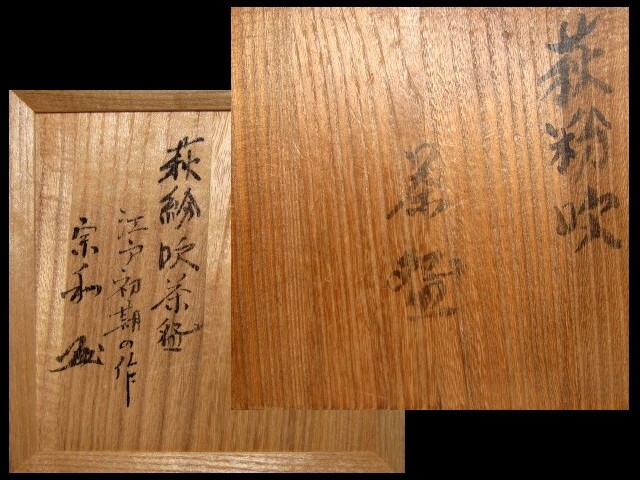 萩粉吹
茶盌
萩粉吹茶盌
江戸初期の作
宗和